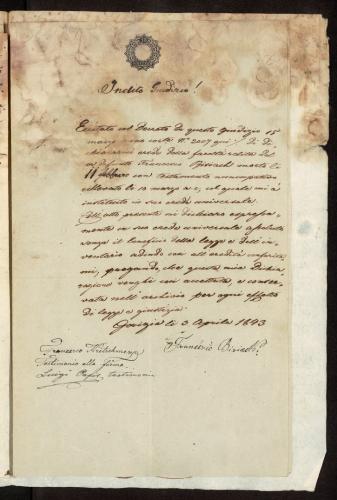 Inclito Giudizio!
Eccitato col Decreto di questo Giudizio 15
marzo N. 2007 qui
chiararmi erede della facoltà relitta del
defunto Francesco Biviach morto li
11 febbraio con testamento nuncupativo
li 10 marzo a. c., col quale mi à
instituito in suo erede universale.
Coll'atto presente mi dichiaro espressa-
mente in suo erede universale assoluto
senza il beneficio della legge e dell'in-
ventario adendo con ciò all'eredità conferita-
mi, pregando, che questa mia Dichia-
razione venghi con accettata, e conser-
vata nell'archivio per ogni effetto
di legge e giustizia.
Gorizia li 3 Aprile 1843
Francesco Biviach
Francesco Kretschmeyer
Testimonio alla firma
Luigi testimonio